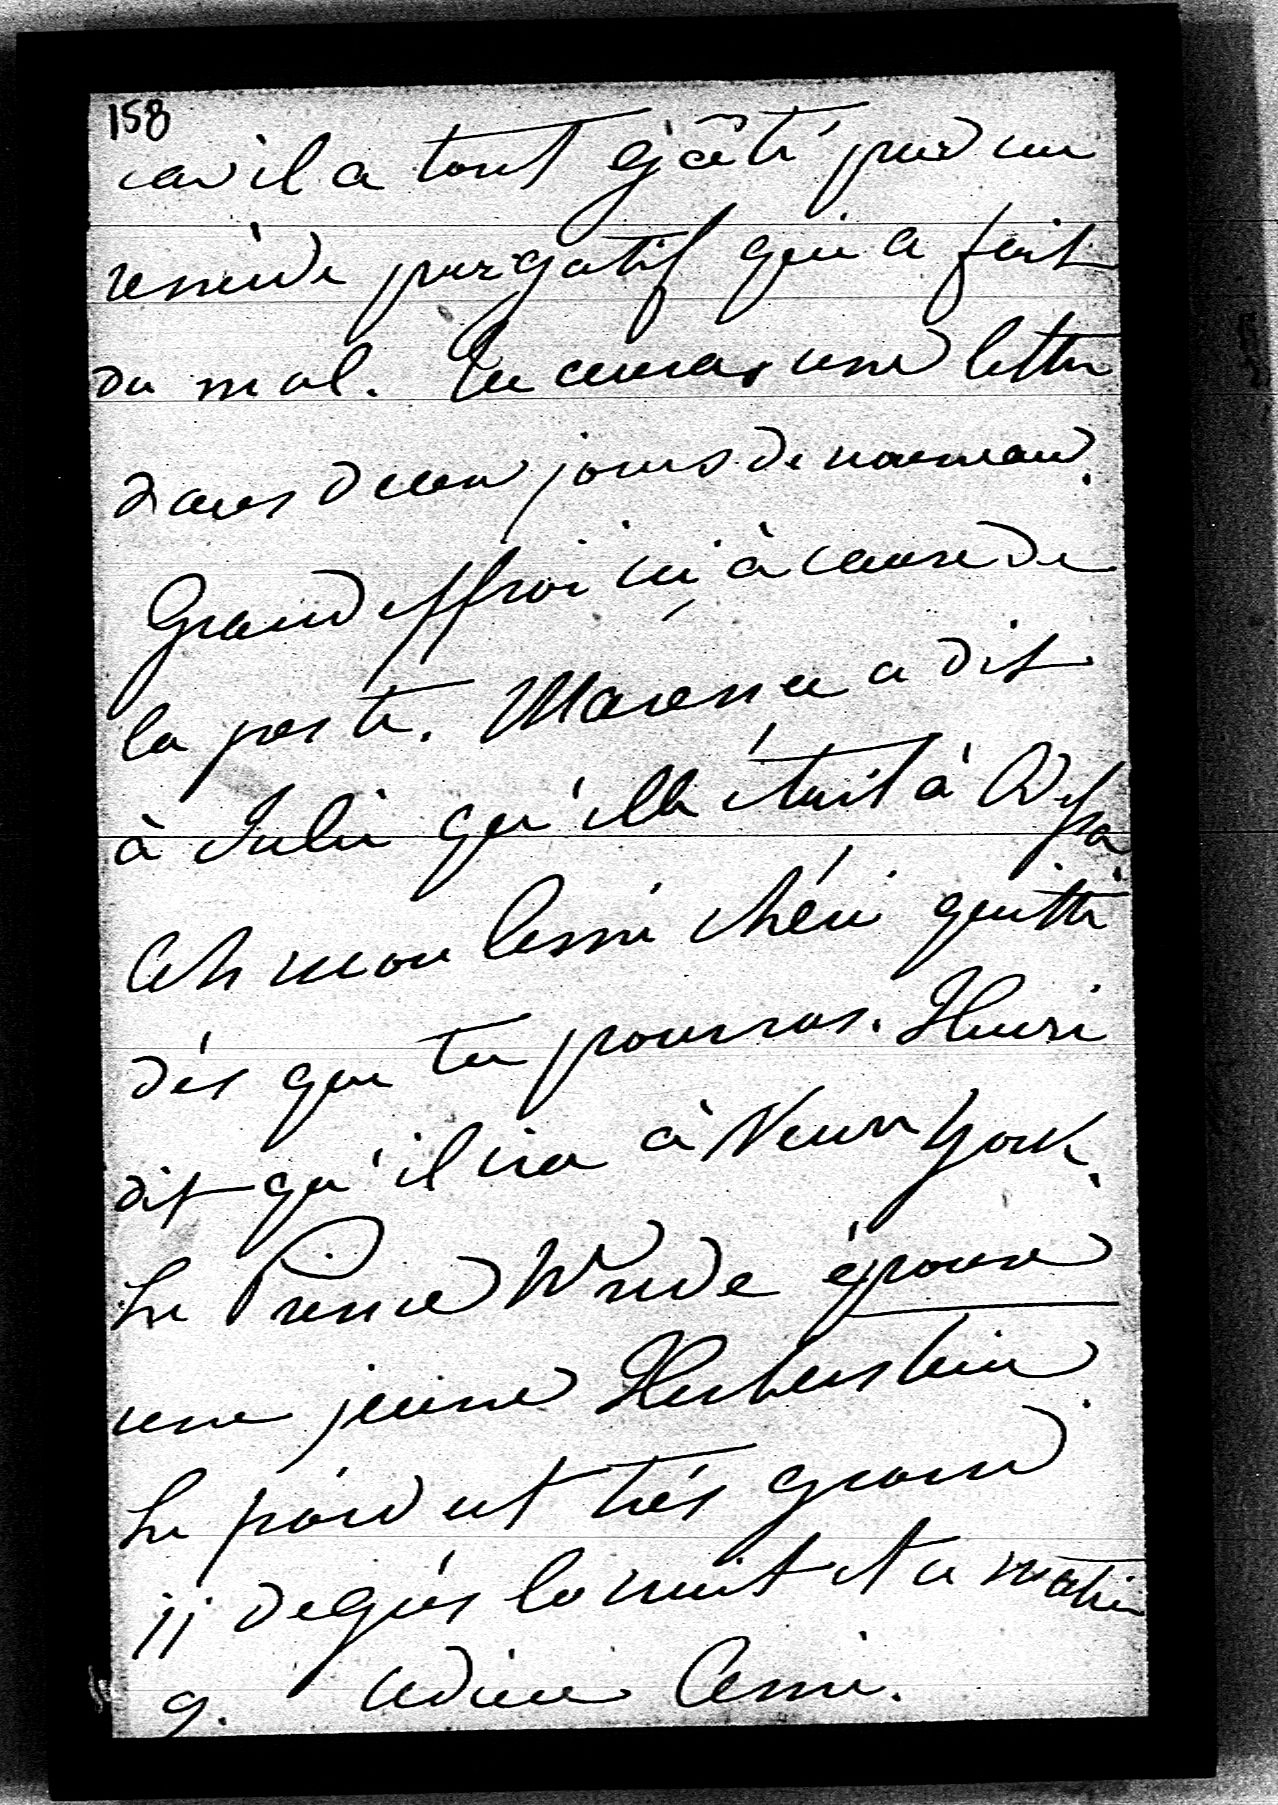 158
car il a tout gâté par un
remède purgatif qui a fait
du mal. Tu auras une lettre
dans deux jours de nouveau.
Grand effroi ici à cause de
la peste. a dit
à Julie qu'elle était à Odessa
Ah mon Cerni chéri quitte
dés que tu pourras. Henri
dit qu'il ira à New York.
Le Prince Wrede épouse
une jeune Herberstein
Le froid est trés grand
11 degrés la nuit et ce matin
9. adieu Cerni.